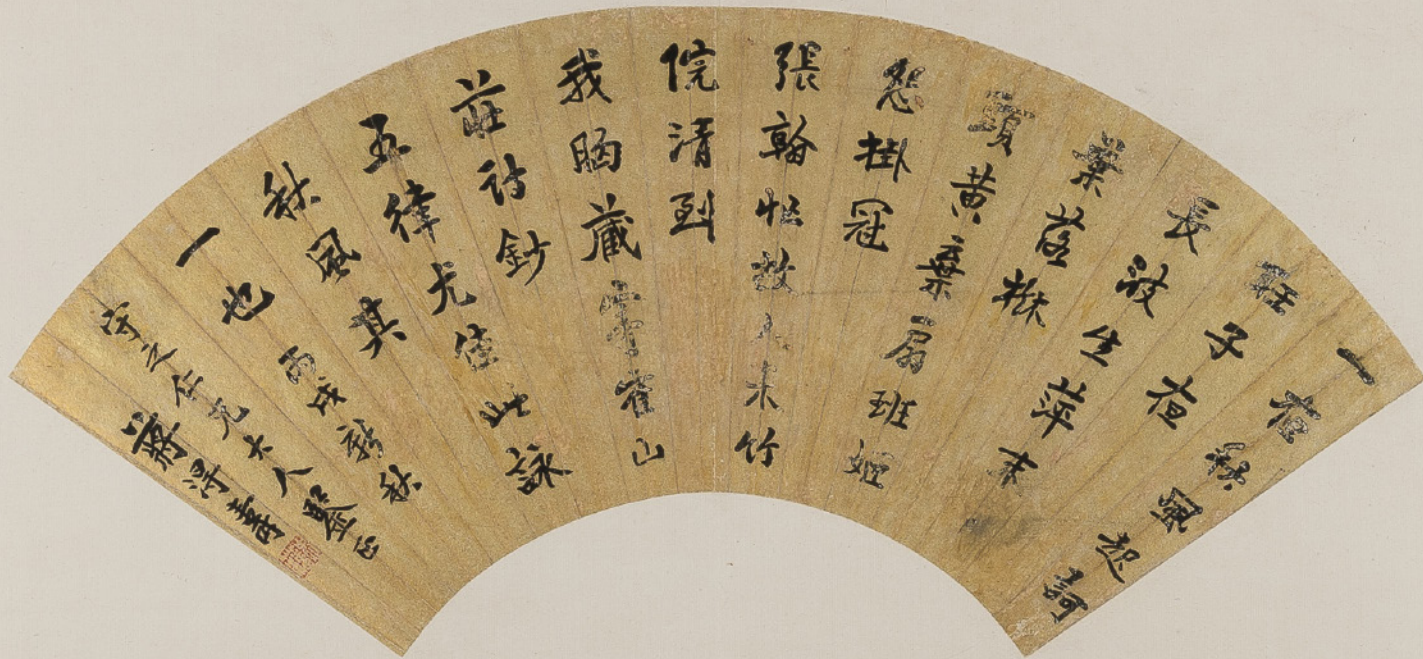 一夜秋風起訶
聽子夜
長波生萍末
葉落樹
頭黃棄扇班姬
怨掛冠
張翰忙故人來竹
院清到
我胸藏雀山
莊詩鈔
五律尤佳此詠
秋風其
一也
丙戌新秋
守之仁兄大人鑒正
蔣壽